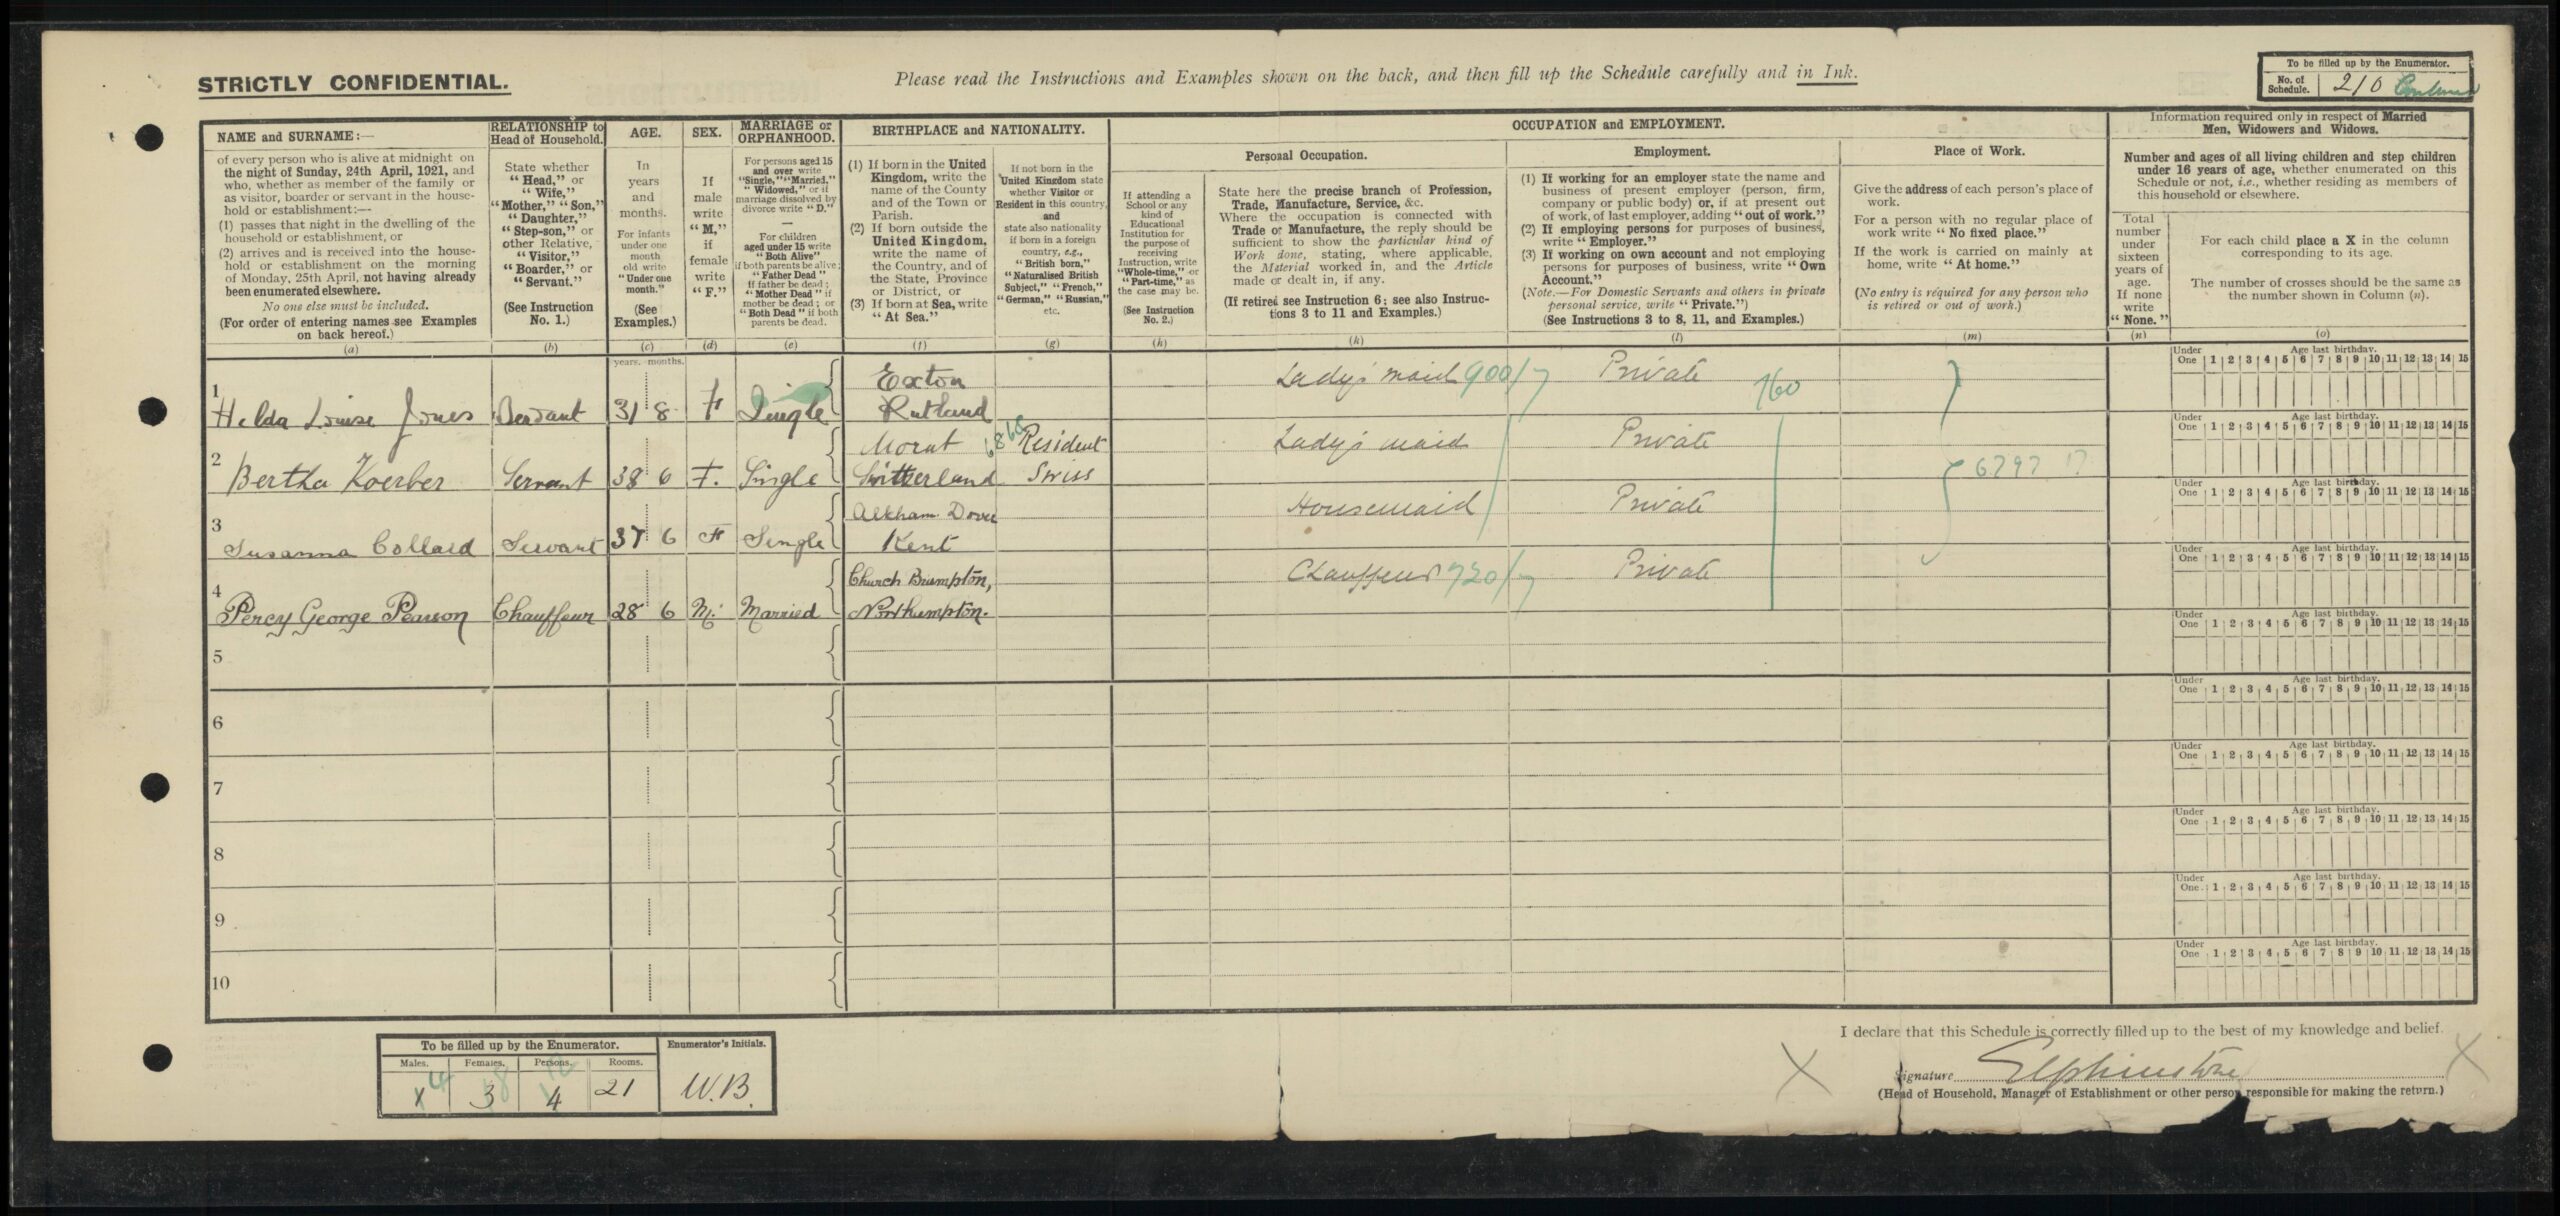 STRICTLY CONFIDENTIAL.
Please read the Instructions and Examples shown on the back, and then fill up the Schedule carefully and in Ink.
To be filled up by the Enumerator.
No. of Schedule. 210
NAME and SURNAME:—
of every person who is alive at midnight on
the night of Sunday, 24th April, 1921, and
who, whether as member of the family or
as visitor, boarder or servant in the house-
hold or establishment:—
(1) passes that night in the dwelling of the
household or establishment, or
(2) arrives and is received into the house-
hold or establishment on the morning
of Monday, 25th April, not having already
been enumerated elsewhere.
No one else must be included.
(For order of entering names see Examples
on back hereof.)
(a)
RELATIONSHIP to
Head of Household.
State whether
"Head," or
"Wife,"
"Mother," "Son,"
"Daughter,"
"Step-son," or
other Relative,
"Visitor,"
"Boarder," or
"Servant."
(See Instruction
No. 1.)
(b)
AGE.
In
years
and
months.
For infants
under one
month
old write
"Under one
month."
(See
Examples.)
(c)
SEX.
If
male
write
"M,"
if
female
write
"F."
(d)
MARRIAGE or
ORPHANHOOD.
For persons aged 15
and over write
"Single," "Married,"
"Widowed," or if
marriage dissolved by
divorce write "D."
—
For children
aged under 15 write
"Both Alive"
if both parents be alive;
"Father Dead"
if father be dead;
"Mother Dead" if
mother be dead; or
"Both Dead" if both
parents be dead.
(e)
BIRTHPLACE and NATIONALITY.
(1) If born in the United
Kingdom, write the
name of the County
and of the Town or
Parish.
(2) If born outside the
United Kingdom,
write the name of
the Country, and of
the State, Province
or District, or
(3) If born at Sea, write
"At Sea."
(f)
If not born in the
United Kingdom state
whether Visitor or
Resident in this country,
and
state also nationality
if born in a foreign
country, e.g.,
"British born,"
"Naturalised British
Subject," "French,"
"German," "Russian,"
etc.
(g)
OCCUPATION and EMPLOYMENT.
Personal Occupation.
If attending a
School or any
kind of
Educational
Institution for
the purpose of
receiving
Instruction, write
"Whole-time," or
"Part-time," as
the case may be.
(See Instruction
No. 2.)
(h)
State here the precise branch of Profession,
Trade, Manufacture, Service, &c.
Where the occupation is connected with
Trade or Manufacture, the reply should be
sufficient to show the particular kind of
Work done, stating, where applicable,
the Material worked in, and the Article
made or dealt in, if any.
(If retired see Instruction 6; see also Instruc-
tions 3 to 11 and Examples.)
(k)
Employment.
(1) If working for an employer state the name and
business of present employer (person, firm,
company or public body) or, if at present out
of work, of last employer, adding "out of work."
(2) If employing persons for purposes of business,
write "Employer."
(3) If working on own account and not employing
persons for purposes of business, write "Own
Account."
(Note.—For Domestic Servants and others in private
personal service, write "Private.")
(See Instructions 3 to 8, 11, and Examples.)
(l)
Place of Work.
Give the address of each person's place of
work.
For a person with no regular place of
work write "No fixed place."
If the work is carried on mainly at
home, write "At home."
(No entry is required for any person who
is retired or out of work.)
(m)
Information required only in respect of Married
Men, Widowers and Widows.
Number and ages of all living children and step children
under 16 years of age, whether enumerated on this
Schedule or not, i.e., whether residing as members of
this household or elsewhere.
Total
number
under
sixteen
years of
age.
If none
write
"None."
(n)
For each child place a X in the column
corresponding to its age.
The number of crosses should be the same as
the number shown in Column (n).
(o)
years. months.
1 Hilda Louise Jones Servant 31 8 F Single Exton Rutland Lady's maid 900/7 Private 760
Under One Age last birthday. 1 2 3 4 5 6 7 8 9 10 11 12 13 14 15
2 Bertha Koerber Servant 38 6 F. Single Morat Switzerland Resident Swiss Lady's maid Private 6797
Under One Age last birthday. 1 2 3 4 5 6 7 8 9 10 11 12 13 14 15
3 Susanna Collard Servant 37 6 F Single Alkham Dover Kent Housemaid Private
Under One Age last birthday. 1 2 3 4 5 6 7 8 9 10 11 12 13 14 15
4 Percy George Pearson Chauffeur 28 6 M. Married Church Brampton, Northampton. Chauffeur 720/7 Private
Under One Age last birthday. 1 2 3 4 5 6 7 8 9 10 11 12 13 14 15
5
Under One Age last birthday. 1 2 3 4 5 6 7 8 9 10 11 12 13 14 15
6
Under One Age last birthday. 1 2 3 4 5 6 7 8 9 10 11 12 13 14 15
7
Under One Age last birthday. 1 2 3 4 5 6 7 8 9 10 11 12 13 14 15
8
Under One Age last birthday. 1 2 3 4 5 6 7 8 9 10 11 12 13 14 15
9
Under One Age last birthday. 1 2 3 4 5 6 7 8 9 10 11 12 13 14 15
10
Under One Age last birthday. 1 2 3 4 5 6 7 8 9 10 11 12 13 14 15
To be filled up by the Enumerator.
Males. Females. Persons. Rooms.
4 3 4 21
Enumerator's Initials.
W.B.
I declare that this Schedule is correctly filled up to the best of my knowledge and belief.
X Signature Elphinstone X
(Head of Household, Manager of Establishment or other person responsible for making the return.)